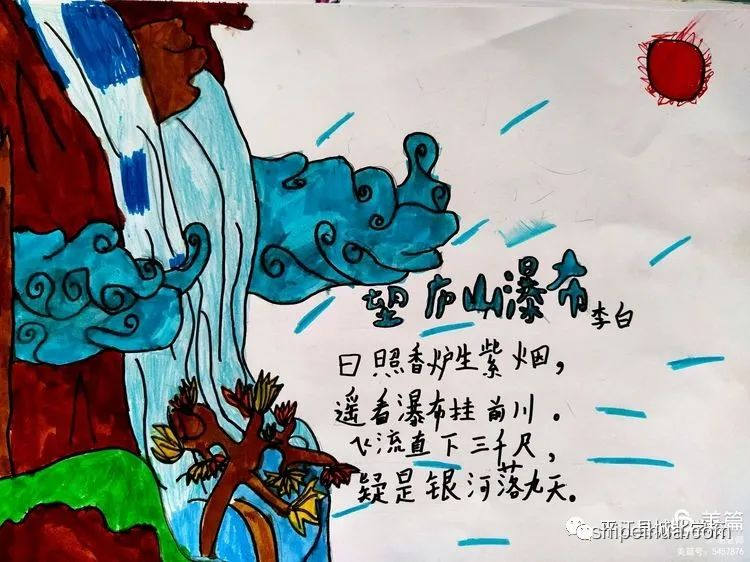 望庐山瀑布
李白
日照香炉生紫烟，
遥看瀑布挂前川．
飞流直下三千尺，
疑是银河落九天．
美篇
smpeihua.com
美篇号：5457876